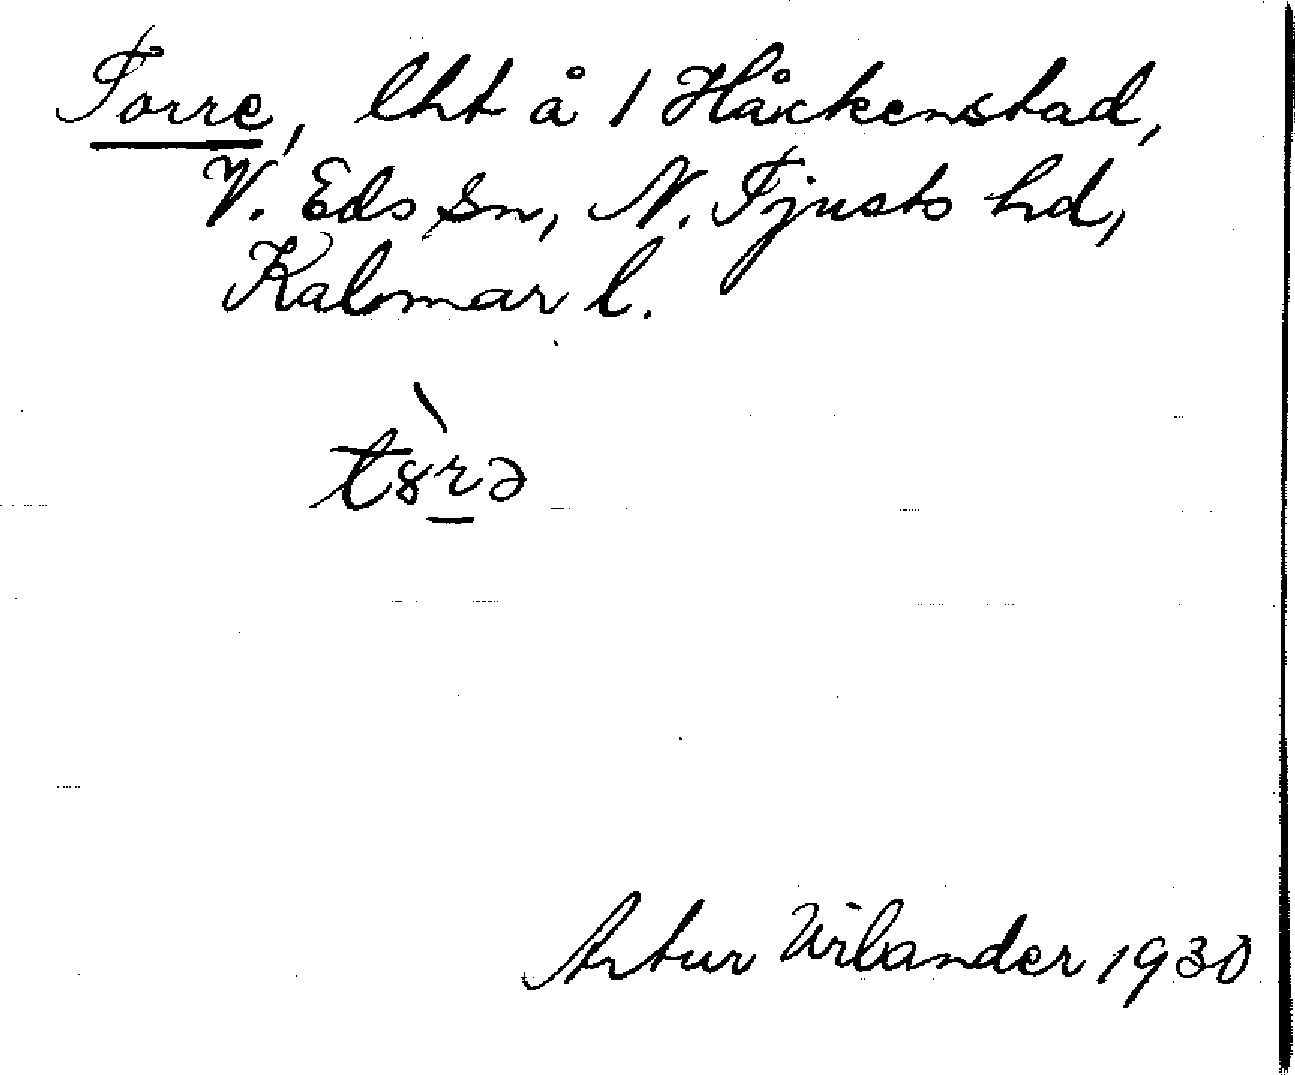 Torre, lht å 1 Håckenstad,
V. Eds sn, N. Tjusts hd,
Kalmar l.
t8̀r̲ə
Artur Wilander 1930